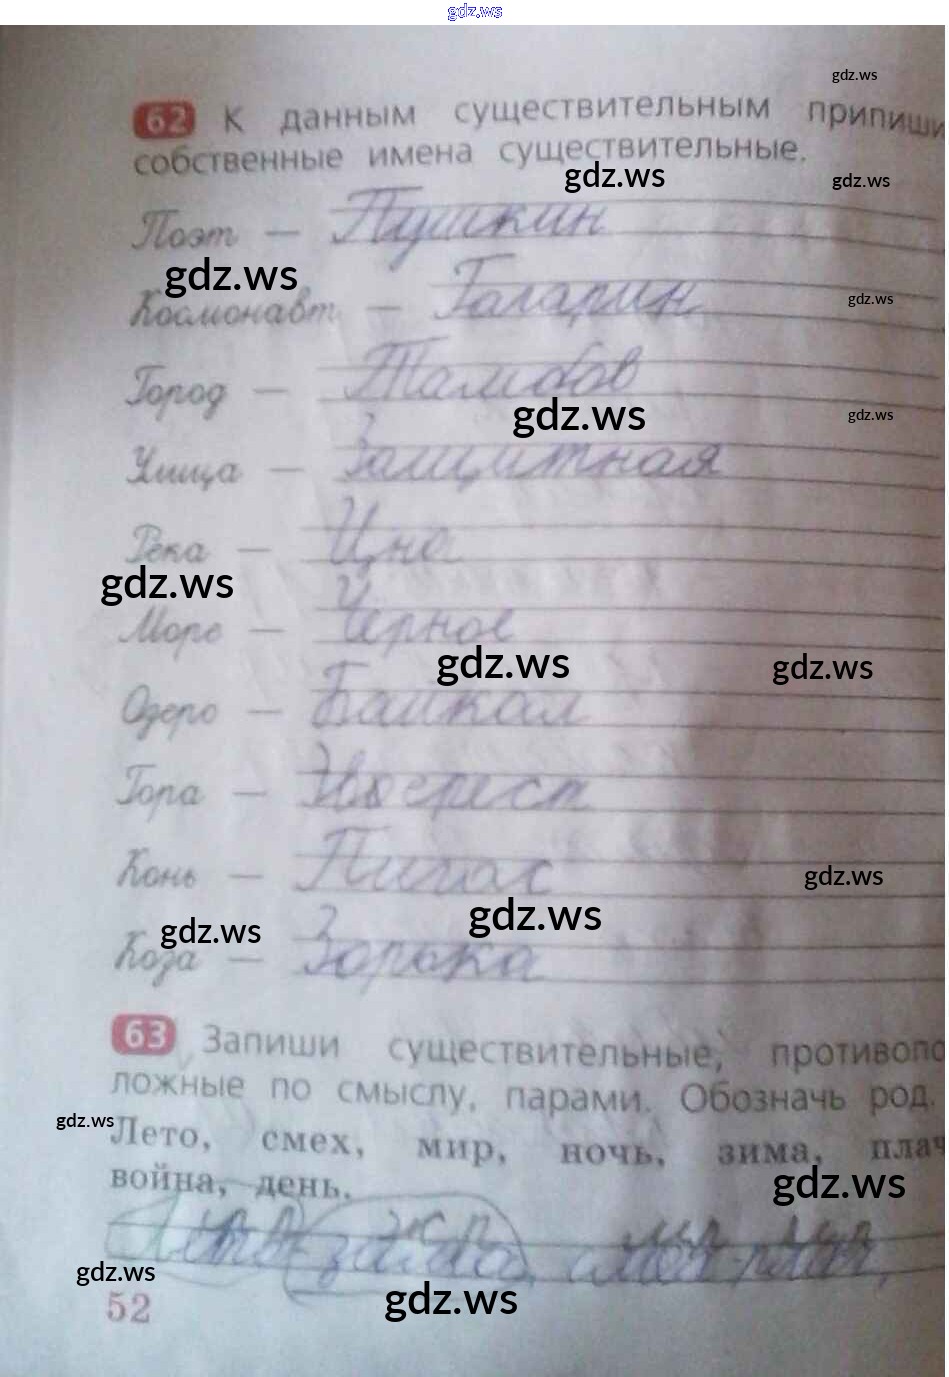 gdz.ws
gdz.ws
62 К данным существительным припиши
собственные имена существительные.
gdz.ws gdz.ws
Поэт — Пушкин
gdz.ws
Космонавт — Гагарин
gdz.ws
Город — Тамбов
gdz.ws gdz.ws
Улица — Защитная
Река — Цна
gdz.ws
Море — Черное
gdz.ws gdz.ws
Озеро — Байкал
Гора — Эверест
Конь — Пигас
gdz.ws
gdz.ws gdz.ws
Коза — Зорька
63 Запиши существительные, противопо
ложные по смыслу, парами. Обозначь род.
gdz.ws
Лето, смех, мир, ночь, зима, плач
война, день.
gdz.ws
Лето-зима, смех-плач,
gdz.ws
gdz.ws
52